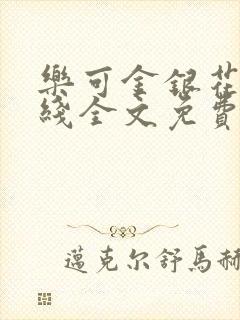 樂可金銀花
綫全文免費
邁克尔舒馬赫